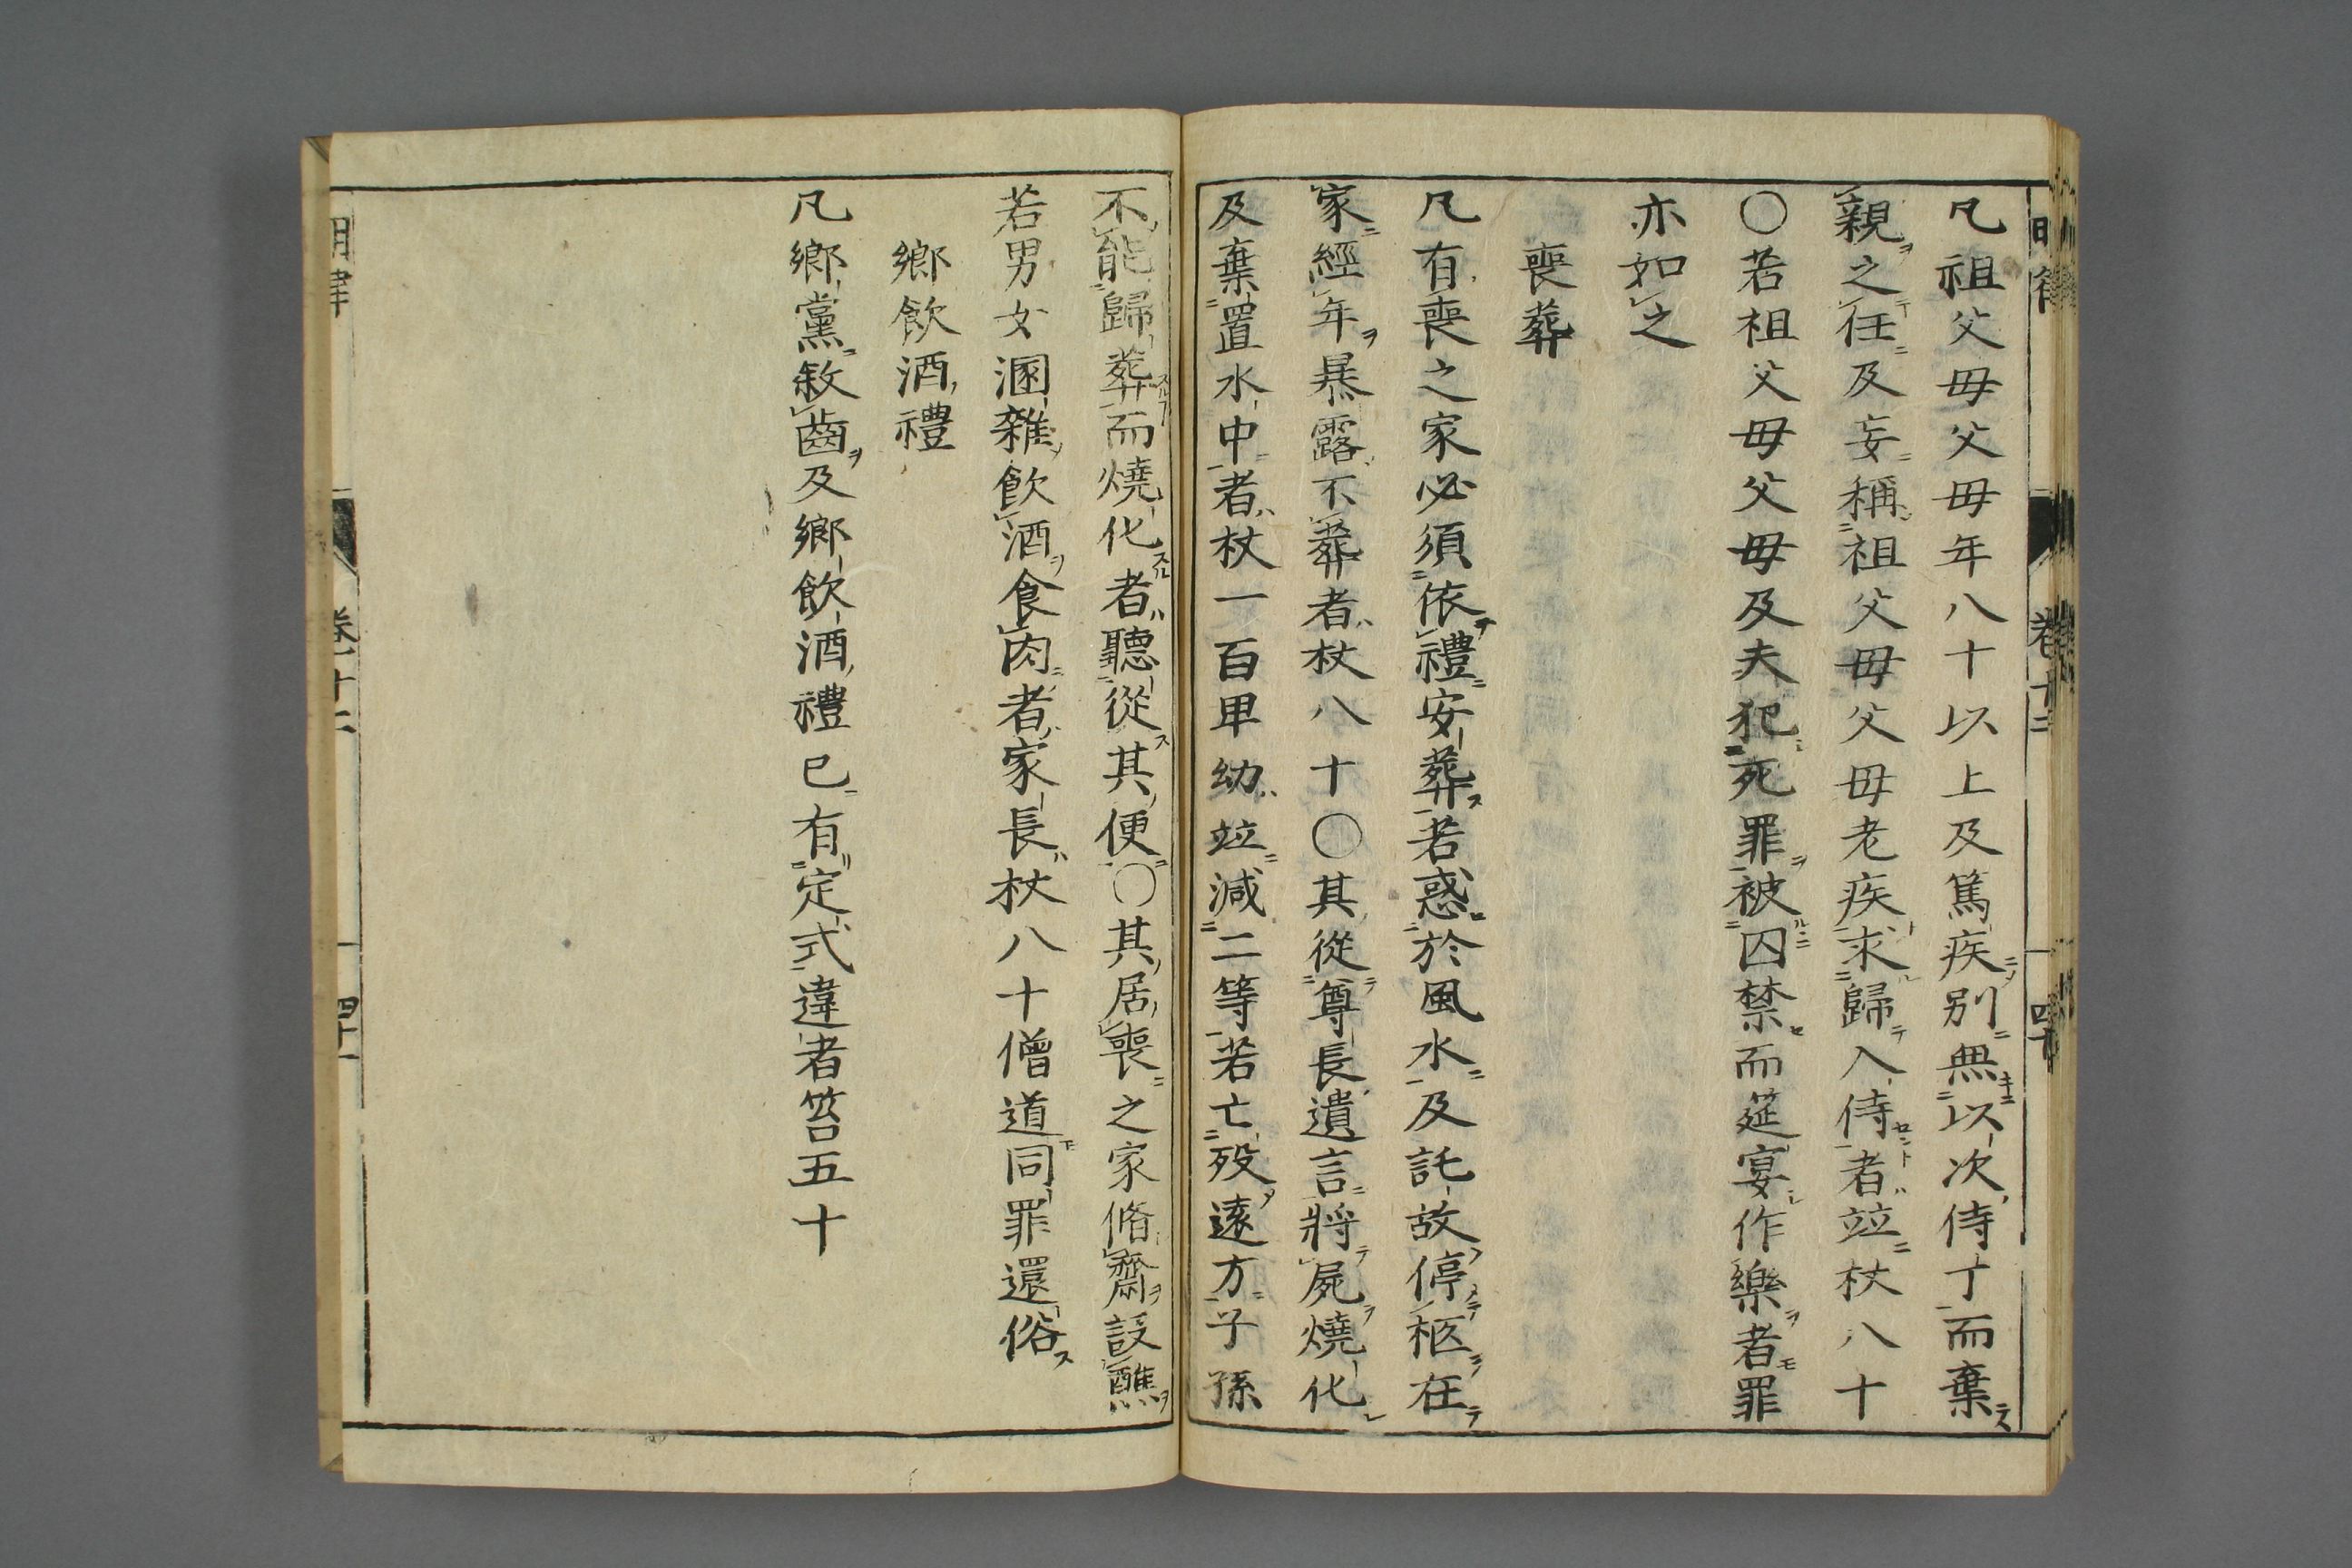 明律 卷十二 四十
凡祖父母父母年八十以上及篤疾別無以次侍丁而棄
親之任及妄稱祖父母父母老疾求歸入侍者竝杖八十
〇若祖父母父母及夫犯死罪被囚禁而筵宴作樂者罪
亦如之
喪葬
凡有喪之家必須依禮安葬若惑於風水及託故停柩在
家經年暴露不葬者杖八十〇其從尊長遺言將屍燒化
及棄置水中者杖一百卑幼竝減二等若亡歿遠方子孫
不能歸葬而燒化者聽從其便〇其居喪之家脩齋設醮
若男女溷雜飲酒食肉者家長杖八十僧道同罪還俗
鄉飲酒禮
凡鄉黨敘齒及鄉飲酒禮已有定式違者笞五十
明律 卷十二 四十一